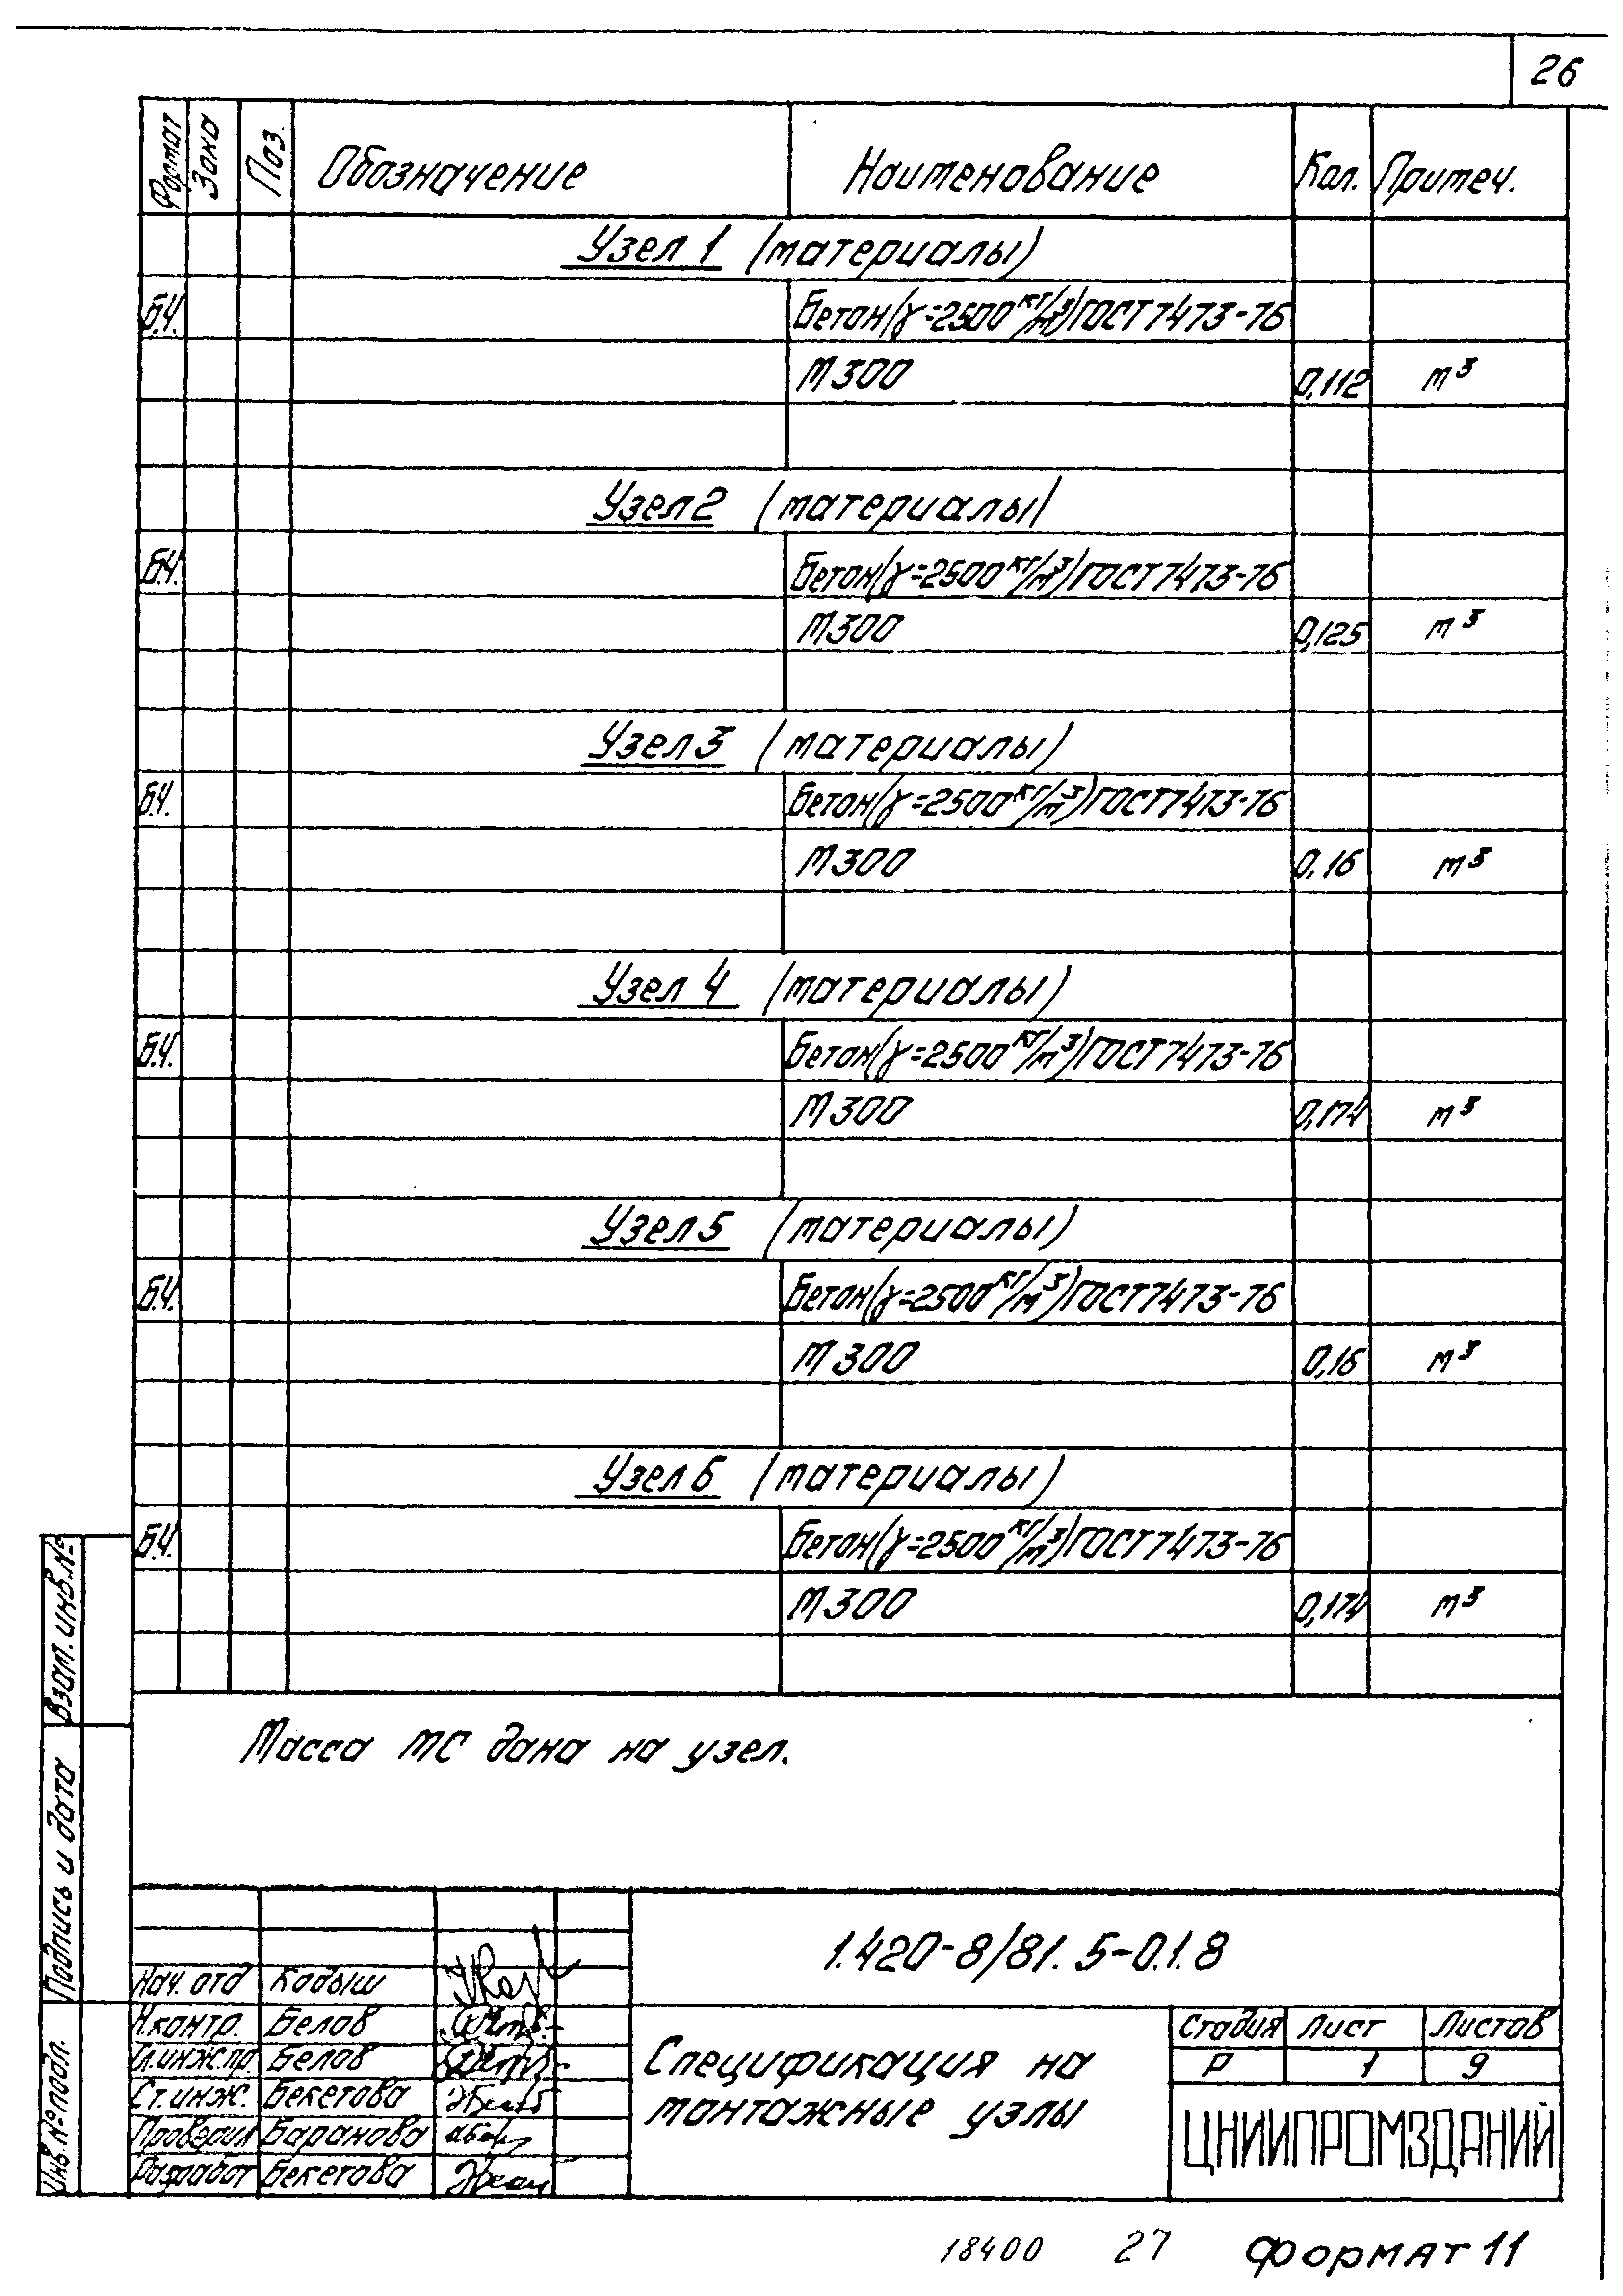 26
Формат Зона Поз. Обозначение Наименование Кол. Примеч.
Узел 1 (материалы)
Б.Ч. Бетон (γ=2500 кг/м³) ГОСТ 7473-76
М300 0,112 м³
Узел 2 (материалы)
Б.Ч. Бетон (γ=2500 кг/м³) ГОСТ 7473-76
М300 0,125 м³
Узел 3 (материалы)
Б.Ч. Бетон (γ=2500 кг/м³) ГОСТ 7473-76
М300 0,16 м³
Узел 4 (материалы)
Б.Ч. Бетон (γ=2500 кг/м³) ГОСТ 7473-76
М300 0,174 м³
Узел 5 (материалы)
Б.Ч. Бетон (γ=2500 кг/м³) ГОСТ 7473-76
М300 0,16 м³
Узел 6 (материалы)
Б.Ч. Бетон (γ=2500 кг/м³) ГОСТ 7473-76
М300 0,174 м³
Масса МС дана на узел.
Взам. инв. №
Подпись и дата
Инв. № подл.
Нач. отд Кодыш
Н.контр. Белов
Гл.инж.пр. Белов
Ст.инж. Бекетова
Проверил Баранова
Разработ Бекетова
1.420-8/81.5-0.1.8
Спецификация на
монтажные узлы
Стадия Лист Листов
Р 1 9
ЦНИИПРОМЗДАНИЙ
18400 27 Формат 11